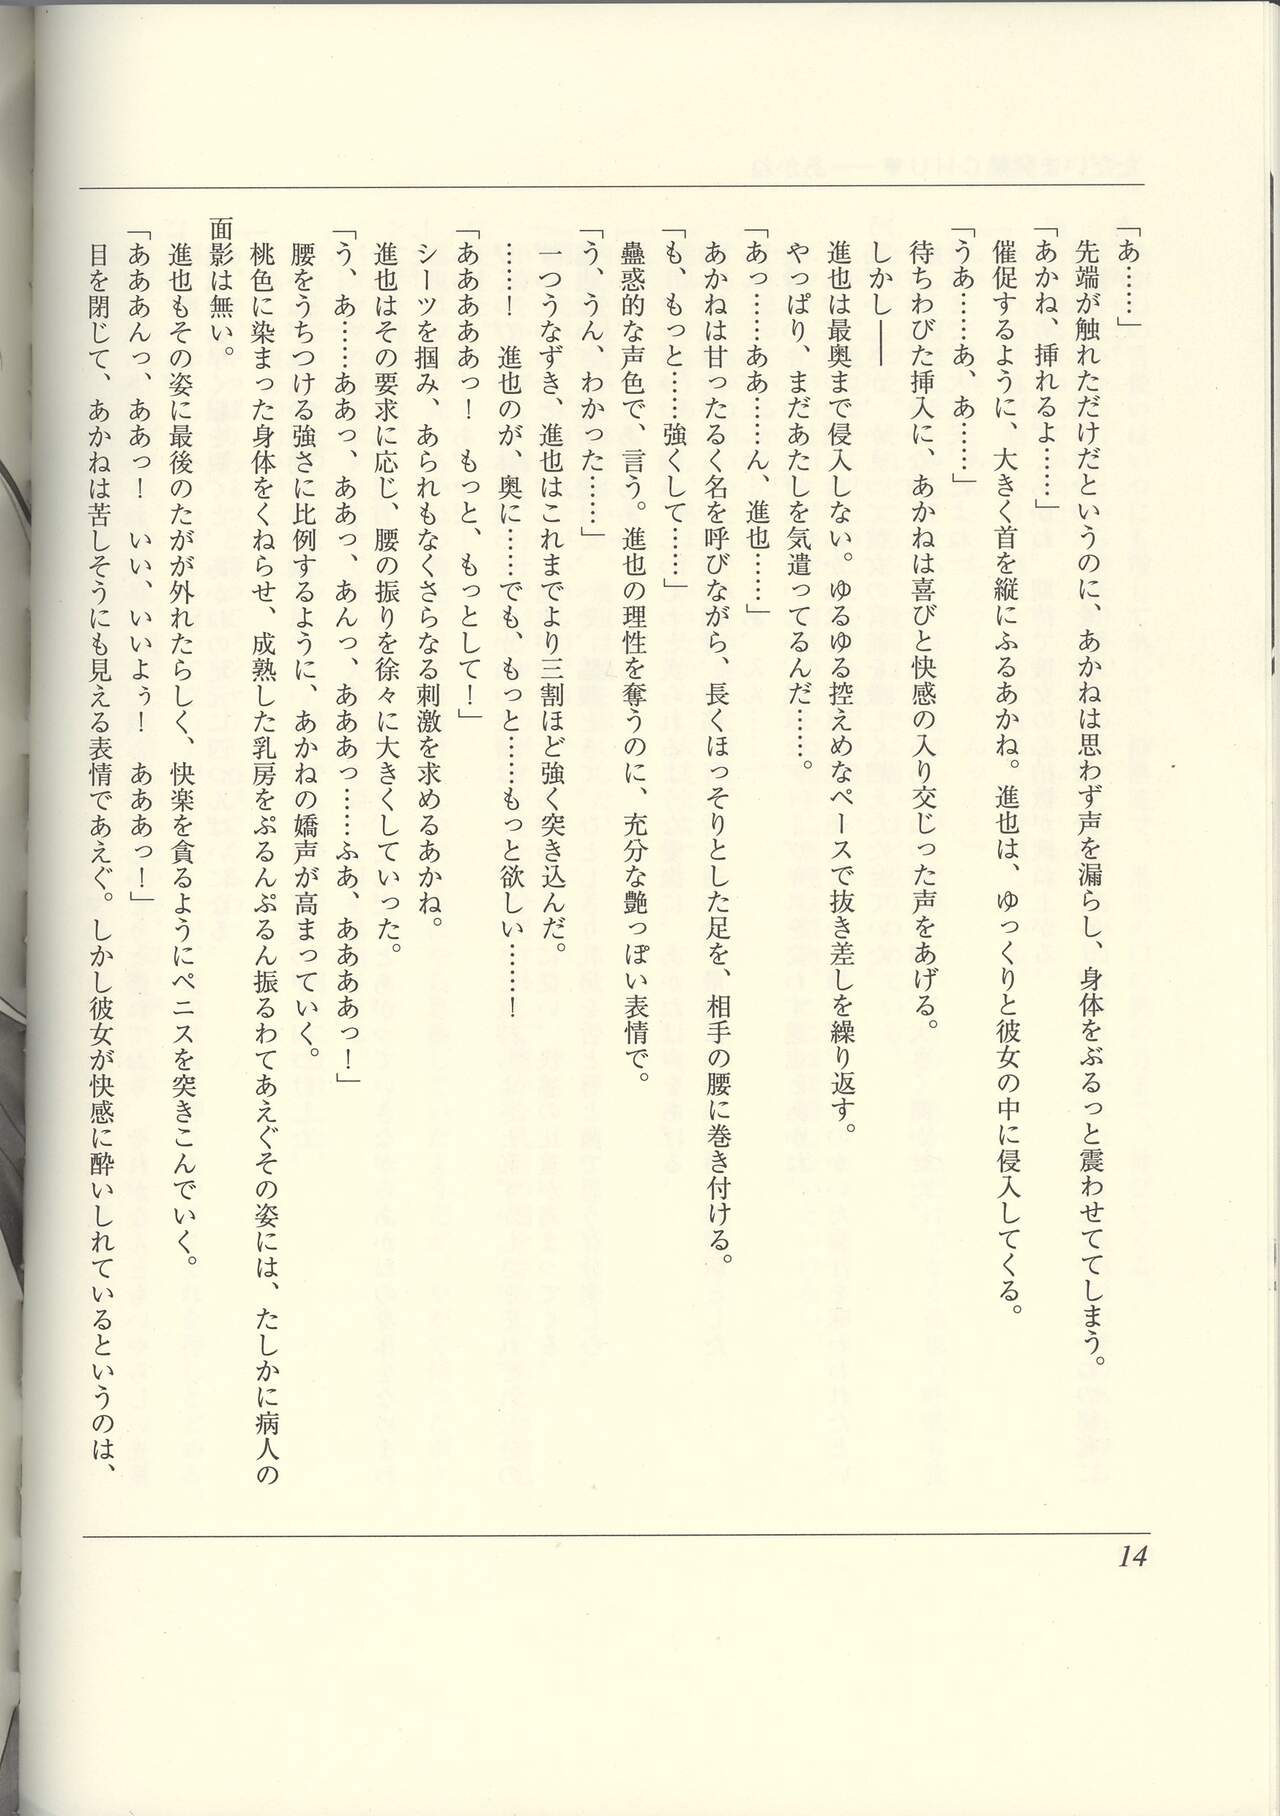 「あ……」
先端が触れただけだというのに、あかねは思わず声を漏らし、身体をぶるっと震わせててしまう。
「あかね、挿れるよ……」
催促するように、大きく首を縦にふるあかね。進也は、ゆっくりと彼女の中に侵入してくる。
「うあ……あ、あ……」
待ちわびた挿入に、あかねは喜びと快感の入り交じった声をあげる。
しかし――
進也は最奥まで侵入しない。ゆるゆる控えめなペースで抜き差しを繰り返す。
やっぱり、まだあたしを気遣ってるんだ……。
「あっ……ああ……ん、進也……」
あかねは甘ったるく名を呼びながら、長くほっそりとした足を、相手の腰に巻き付ける。
「も、もっと……強くして……」
蠱惑的な声色で、言う。進也の理性を奪うのに、充分な艶っぽい表情で。
「う、うん、わかった……」
一つうなずき、進也はこれまでより三割ほど強く突き込んだ。
……！　進也のが、奥に……でも、もっと……もっと欲しい……！
「あああああっ！　もっと、もっとして！」
シーツを掴み、あられもなくさらなる刺激を求めるあかね。
進也はその要求に応じ、腰の振りを徐々に大きくしていった。
「う、あ……ああっ、ああっ、あんっ、あああっ……ふあ、ああああっ！」
腰をうちつける強さに比例するように、あかねの嬌声が高まっていく。
桃色に染まった身体をくねらせ、成熟した乳房をぷるんぷるん振るわてあえぐその姿には、たしかに病人の
面影は無い。
進也もその姿に最後のたがが外れたらしく、快楽を貪るようにペニスを突きこんでいく。
「あああんっ、ああっ！　いい、いいよぅ！　あああっ！」
目を閉じて、あかねは苦しそうにも見える表情であえぐ。しかし彼女が快感に酔いしれているというのは、
14